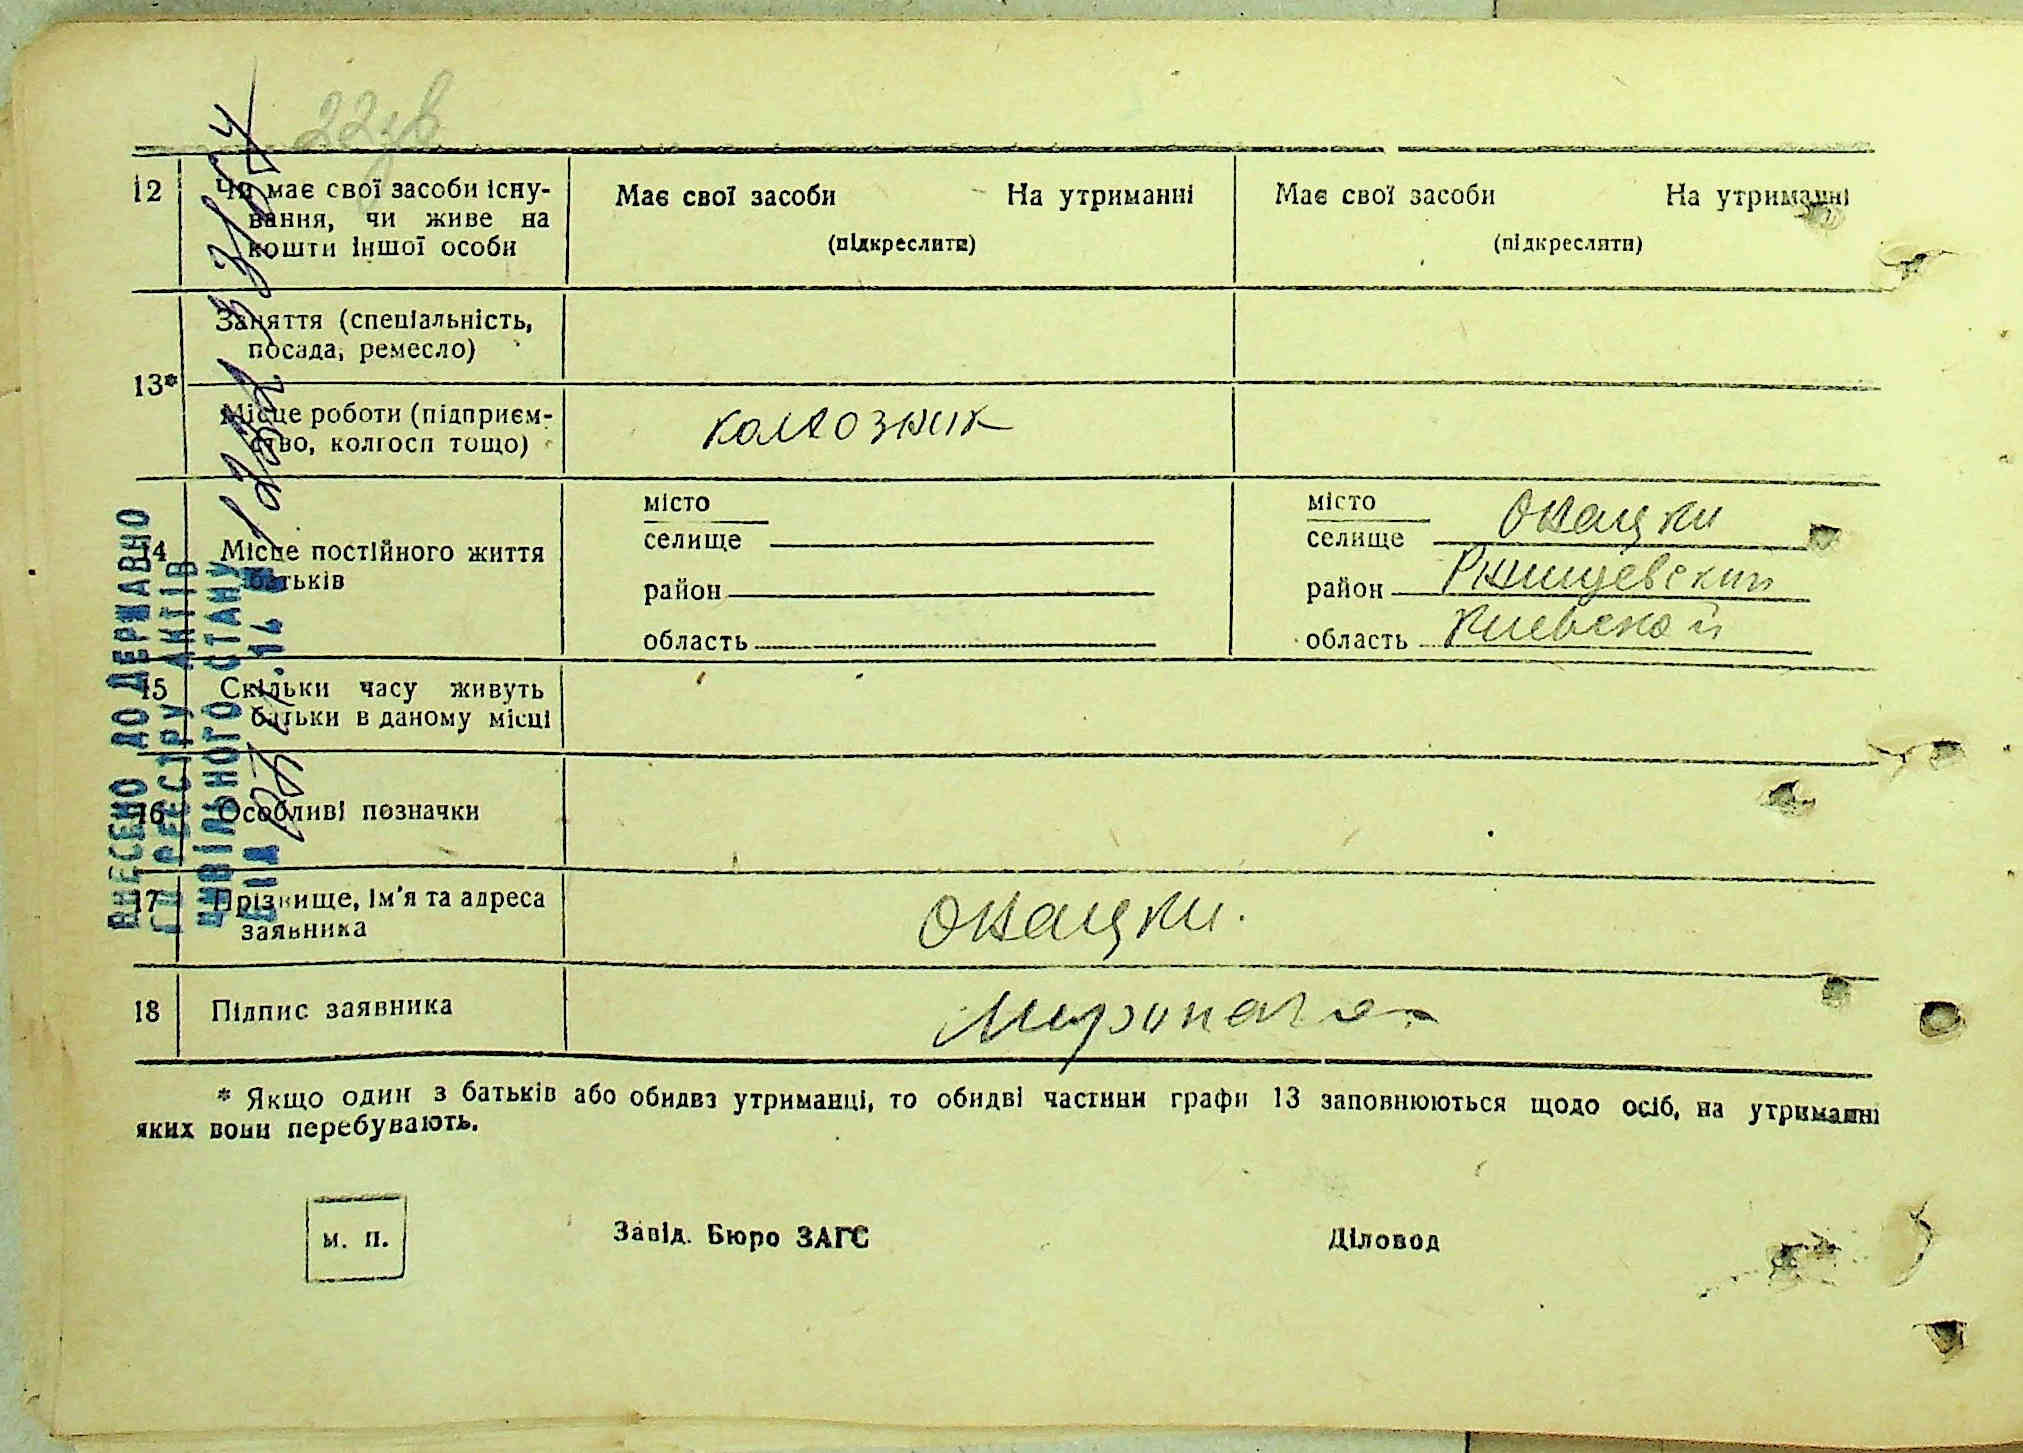 22зв
12
Чи має свої засоби існу-
вання, чи живе на
кошти іншої особи
Має свої засоби На утриманні
(підкреслити)
Має свої засоби На утриманні
(підкреслити)
13*
Заняття (спеціальність,
посада, ремесло)
Місце роботи (підприєм-
ство, колгосп тощо)
колхозник
14
Місце постійного життя
батьків
місто
селище
район
область
місто
селище
район
область
Ржищевский
Киевской
15
Скільки часу живуть
батьки в даному місці
16
Особливі позначки
17
Прізвище, ім'я та адреса
заявника
18
Підпис заявника
* Якщо один з батьків або обидва утриманці, то обидві частини графи 13 заповнюються щодо осіб, на утриманні
яких вони перебувають.
м. п.
Завід. Бюро ЗАГС
Діловод
ВНЕСЕНО ДО ДЕРЖАВНО
ГО РЕЄСТРУ АКТІВ
ЦИВІЛЬНОГО СТАНУ